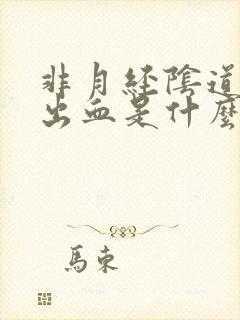 非月經陰道
出血是什麼
馬東